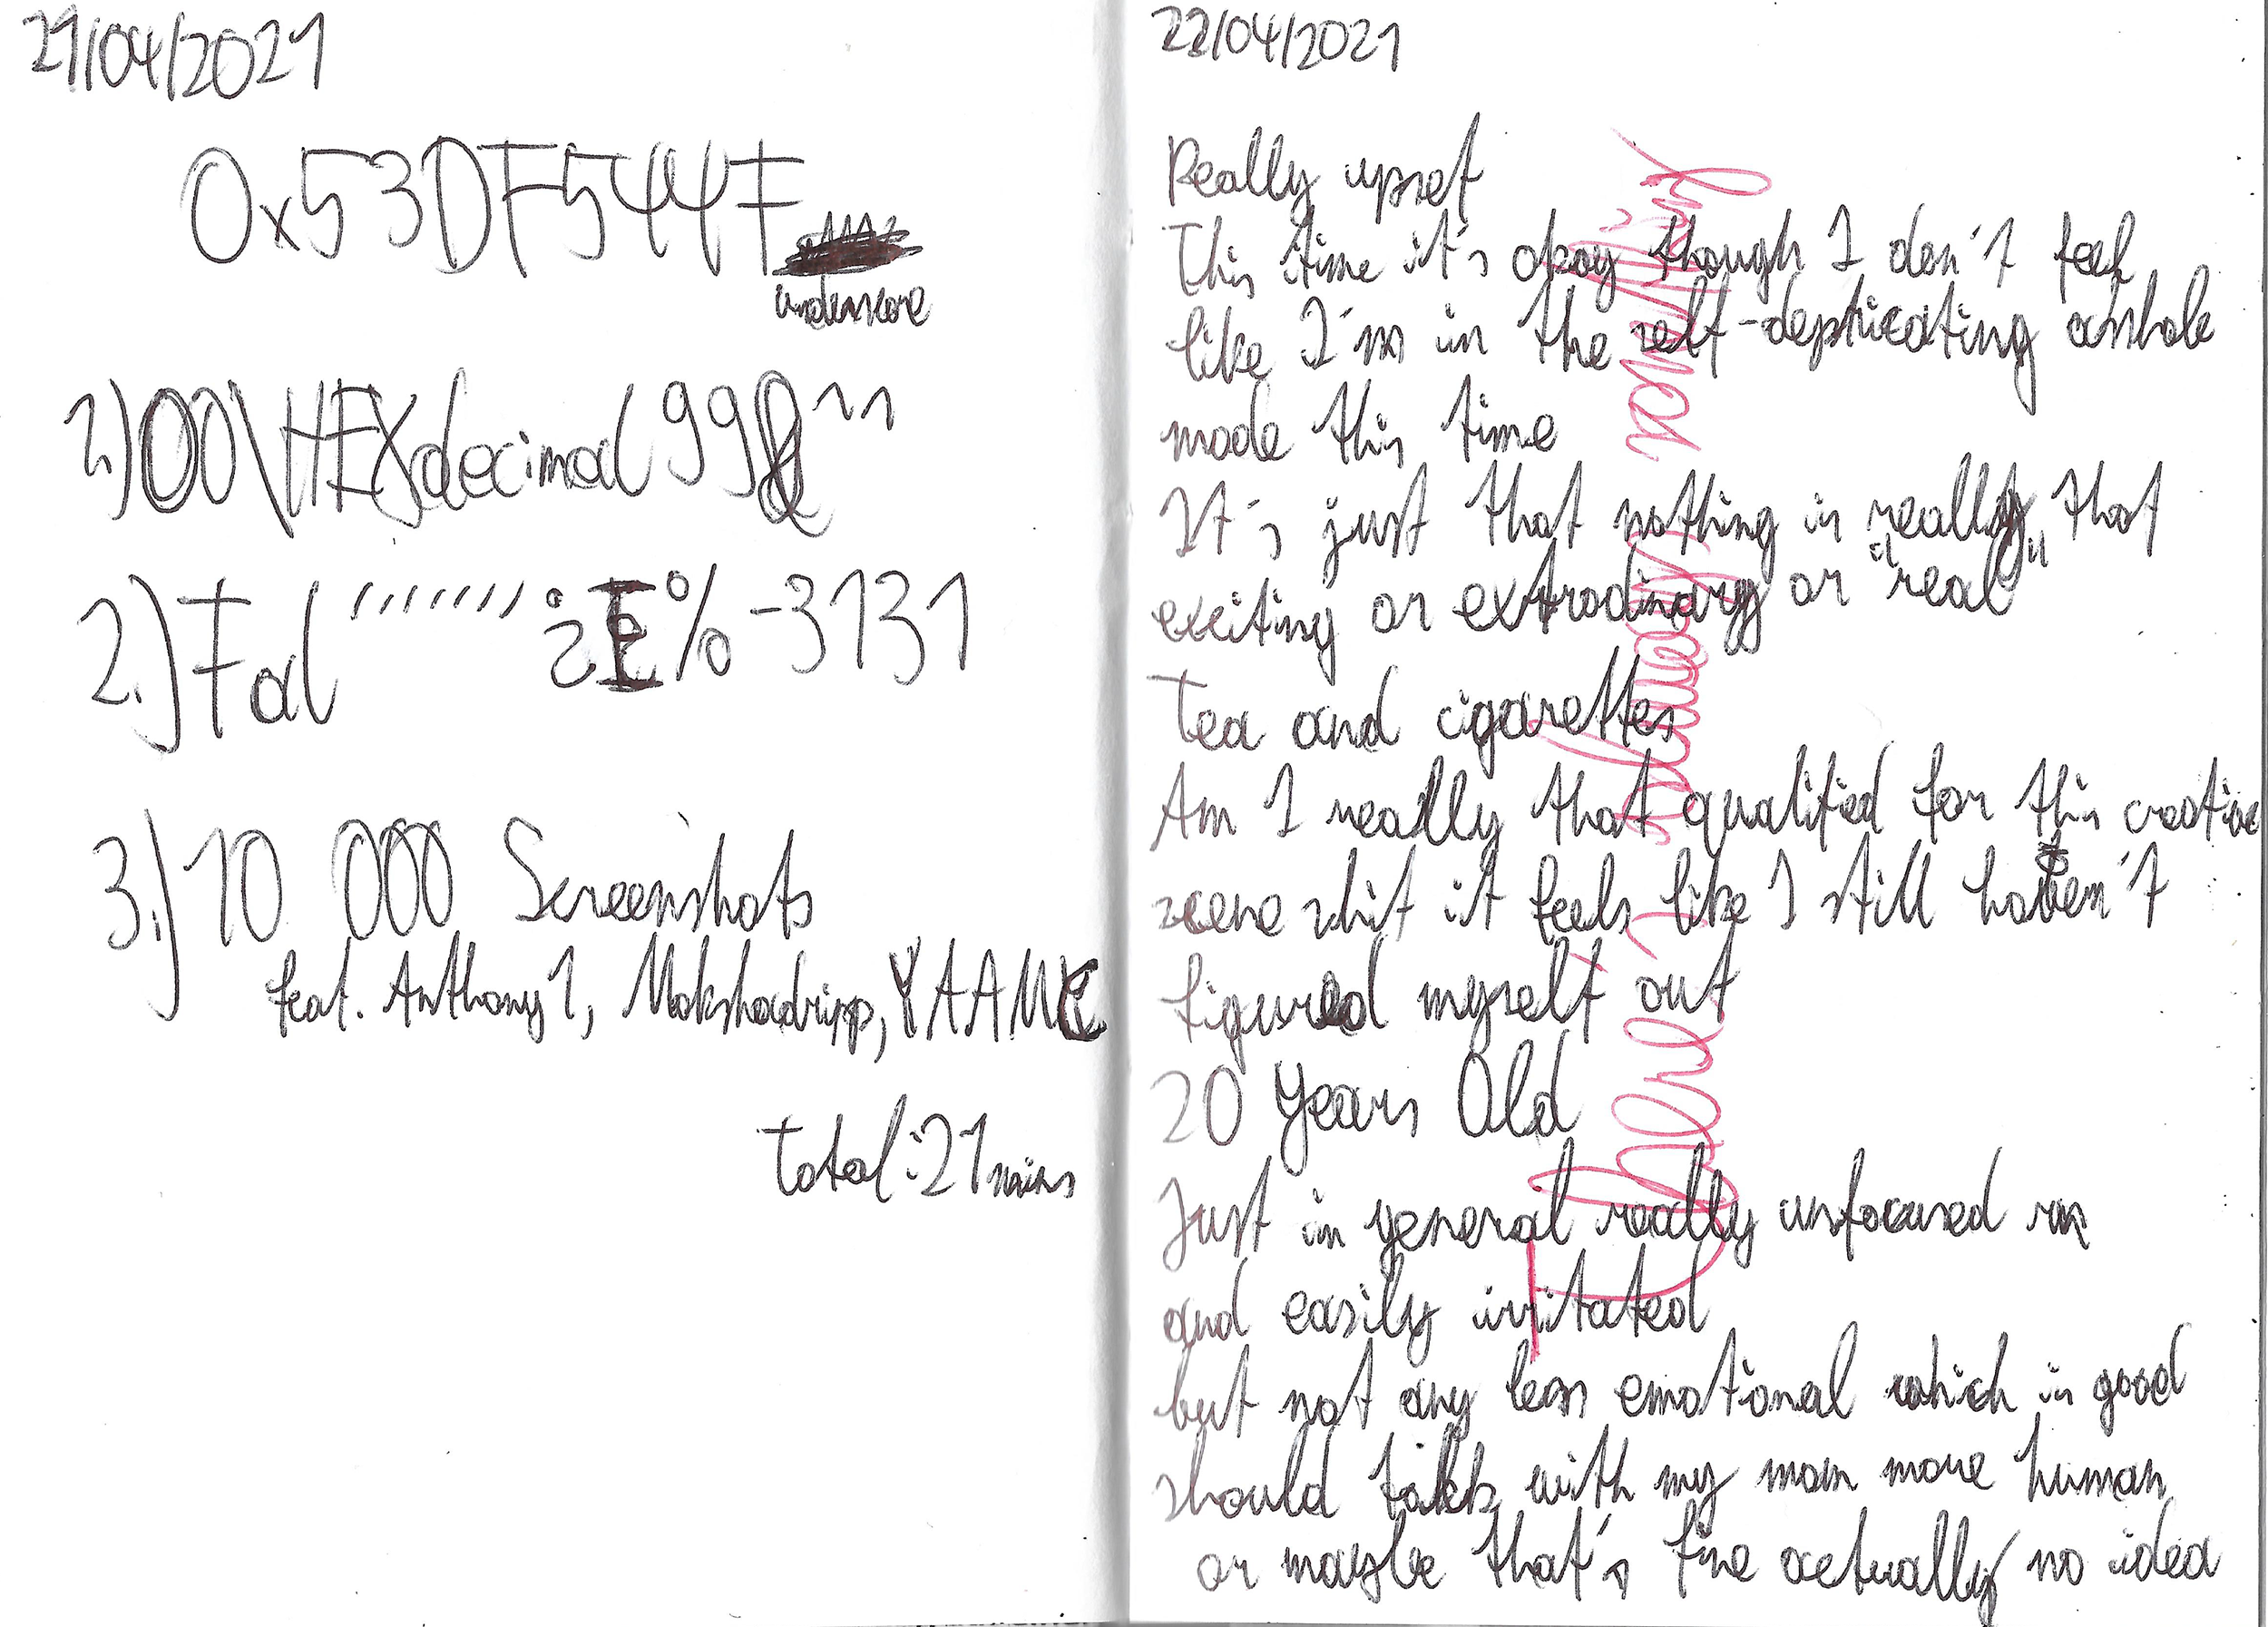 21/04/2021
0x53DF544F
underscore
1.)00\HEXdecimal99
2.)Fal ''''''' %-3131
3.)10 000 Screenshots
feat. Anthony1, Mokshadripp, YAAMC
total:21mins
22/04/2021
Really upset
This time it's okay though I don't feel
like I'm in the self-depricating asshole
mode this time
It's just that nothing is really that
exciting or extrodinary or "real"
Tea and cigarettes
Am I really that qualified for this creative
scene shit it feels like I still haven't
figured myself out
20 Years Old
Just in general really unfocused
and easily irritated
but not any less emotional which is good
should talk with my mom more human
or maybe that's fine actually no idea